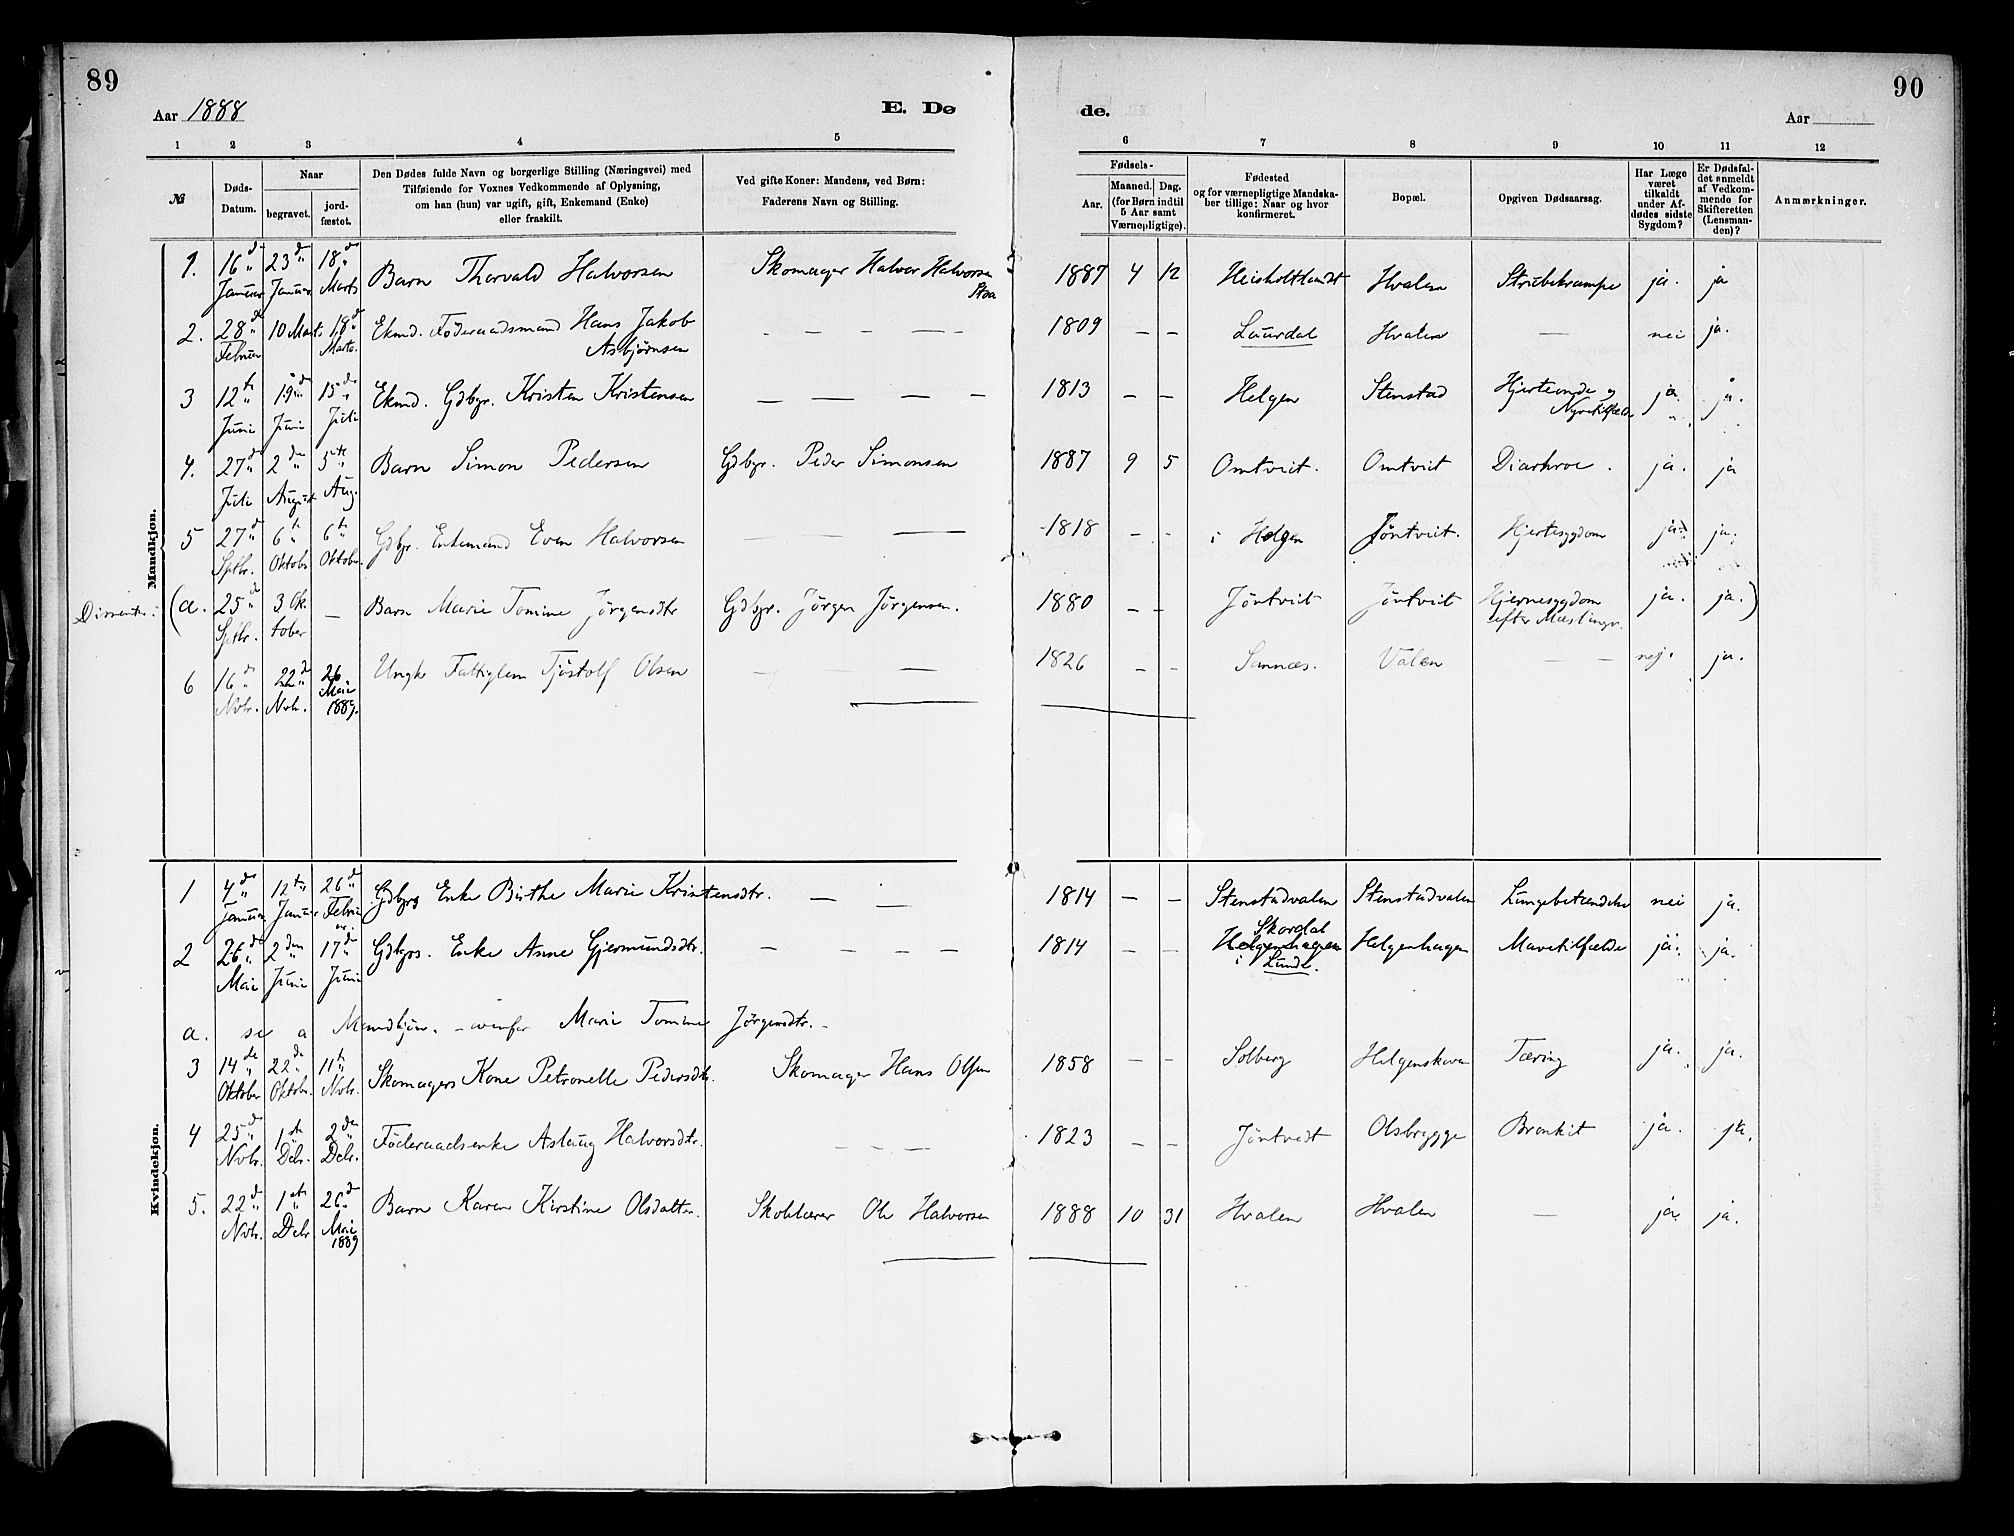 89
90
Aar 1888
E. Dø
de.
Aar
1 2 3 4 5 6 7 8 9 10 11 12
№
Døds-Datum.
Naar
begravet.
jord-fæstet.
Den Dødes fulde Navn og borgerlige Stilling (Næringsvei) med
Tilføiende for Voxnes Vedkommende af Oplysning,
om han (hun) var ugift, gift, Enkemand (Enke)
eller fraskilt.
Ved gifte Koner: Mandens, ved Børn:
Faderens Navn og Stilling.
Fødsels-
Aar.
Maaned. Dag.
(for Børn indtil
5 Aar samt
Værnepligtige).
Fødested
og for værnepligtige Mandska-
ber tillige: Naar og hvor
konfirmeret.
Bopæl.
Opgiven Dødsaarsag.
Har Læge
været
tilkaldt
under Af-
dødes sidste
Sygdom?
Er Dødsfal-
det anmeldt
af Vedkom-
mende for
Skifteretten
(Lensman-
den)?
Anmærkninger.
Mandkjøn.
1. 16d Januar 23d Januar 18d Marts Barn Thorvald Halvorsen Skomager Halvor Halvorsen 1887 4 12 Heisholtlandt Hvalen Strubekrampe ja. ja
2. 28d Februar 10 Mart. 18d Marts. Ekmd. Föderaadsmand Hans Jakob Asbjørnsen — — — — 1809 — — Laurdal Hvalen — nei ja.
3 12te Juni 19de Juni 15de Juli Ekmd. Gdbgr. Kristen Kristensen — — — — 1813 — — Helgen Stenstad Hjerteonde og Nyretilfælde ja. ja.
4. 27d Juli 2den August 5te Aug. Barn Simon Pedersen Gdbgr. Peder Simonsen 1887 9 5 Omtveit. Omtveit Diarhroe. ja. ja
5 27d Sptbr. 6te Oktobr 6te Oktober. Gdbgr. Enkemand Even Halvorsen — — — 1818 — - i Helgen Jøntveit. Hjertesygdom ja. ja.
Dissenter: (a. 25de Sptbr. 3 Oktober — Barn Marie Tomine Jörgensdtr Gdbgr. Jörgen Jörgensen. 1880 — — Jöntveit Jöntveit Hjernesygdom efter Mæslinger. ja. ja.)
6 16de Nvbr. 22de Nvb. 26 Mai 1889. Ungk. Fattiglem Tjöstolf Olsen — — 1826 — — Sannæs. Valen — — nej. ja.
Kvindekjøn.
1 4de Januar 12te Januar 26d Februar. Gdbgrs Enke Birthe Marie Kristensdtr. — — 1814 — — Stenstadvalen Stenstadvalen Lungebetændelse nei ja.
2 26de Mai 2den Juni 17de Juni Gdbgrs. Enke Anne Gjermundsdtr. — — — — 1814 — — Skordal Helgenhagen i Lunde. Helgenhagen Mavetilfælde ja. ja.
a. se a Mandkjön. - ovenfor Marie Tomine Jörgensdtr. -
3 14de Oktober 22de Oktobr. 11te Nvbr. Skomagers Kone Petronelle Pedersdtr. Skomager Hans Olsen 1858 — — Solberg Helgenskoven Tæring ja. ja.
4 25d Nvbr. 1ste Debr. 2den Debr. Föderaadsenke Aslaug Halvorsdtr. — — — 1823 — — Jöntvedt Olsbrygge Bronkit ja. ja.
5. 22d Nvbr. 1ste Debr 26d Mai 1889 Barn Karen Kirstine Olsdatter. Skolelærer Ole Halvorsen 1888 10 31 Hvalen Hvalen — ja. ja.